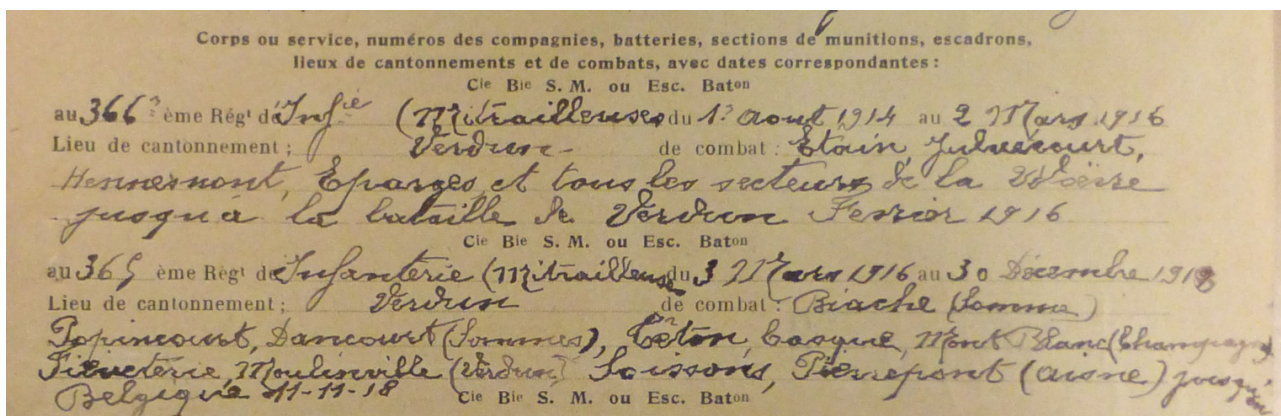 Corps ou service, numéros des compagnies, batteries, sections de munitions, escadrons,
lieux de cantonnements et de combats, avec dates correspondantes :
Cie Bie S. M. ou Esc. Baton
au 366 ème Régt d'Infie (Mitrailleuses du 1er aout 1914 au 2 Mars 1916
Lieu de cantonnement ; Verdun - de combat : Etain, Julvécourt,
Hennemont, Eparges, et tous les secteurs de la Woëvre
jusqu'à la bataille de Verdun Fevrier 1916
Cie Bie S. M. ou Esc. Baton
au 365 ème Régt d'Infanterie (Mitrailleuses du 3 Mars 1916 au 30 Décembre 1918
Lieu de cantonnement ; Verdun de combat : Biache (Somme)
Popincourt, Dancourt (Sommes), Têton, Casque, Mont Blanc (Champagne)
Moulinville (Verdun) Soissons, Pierrepont (Aisne) jusqu'en
Belgique 11-11-18 Cie Bie S. M. ou Esc. Baton